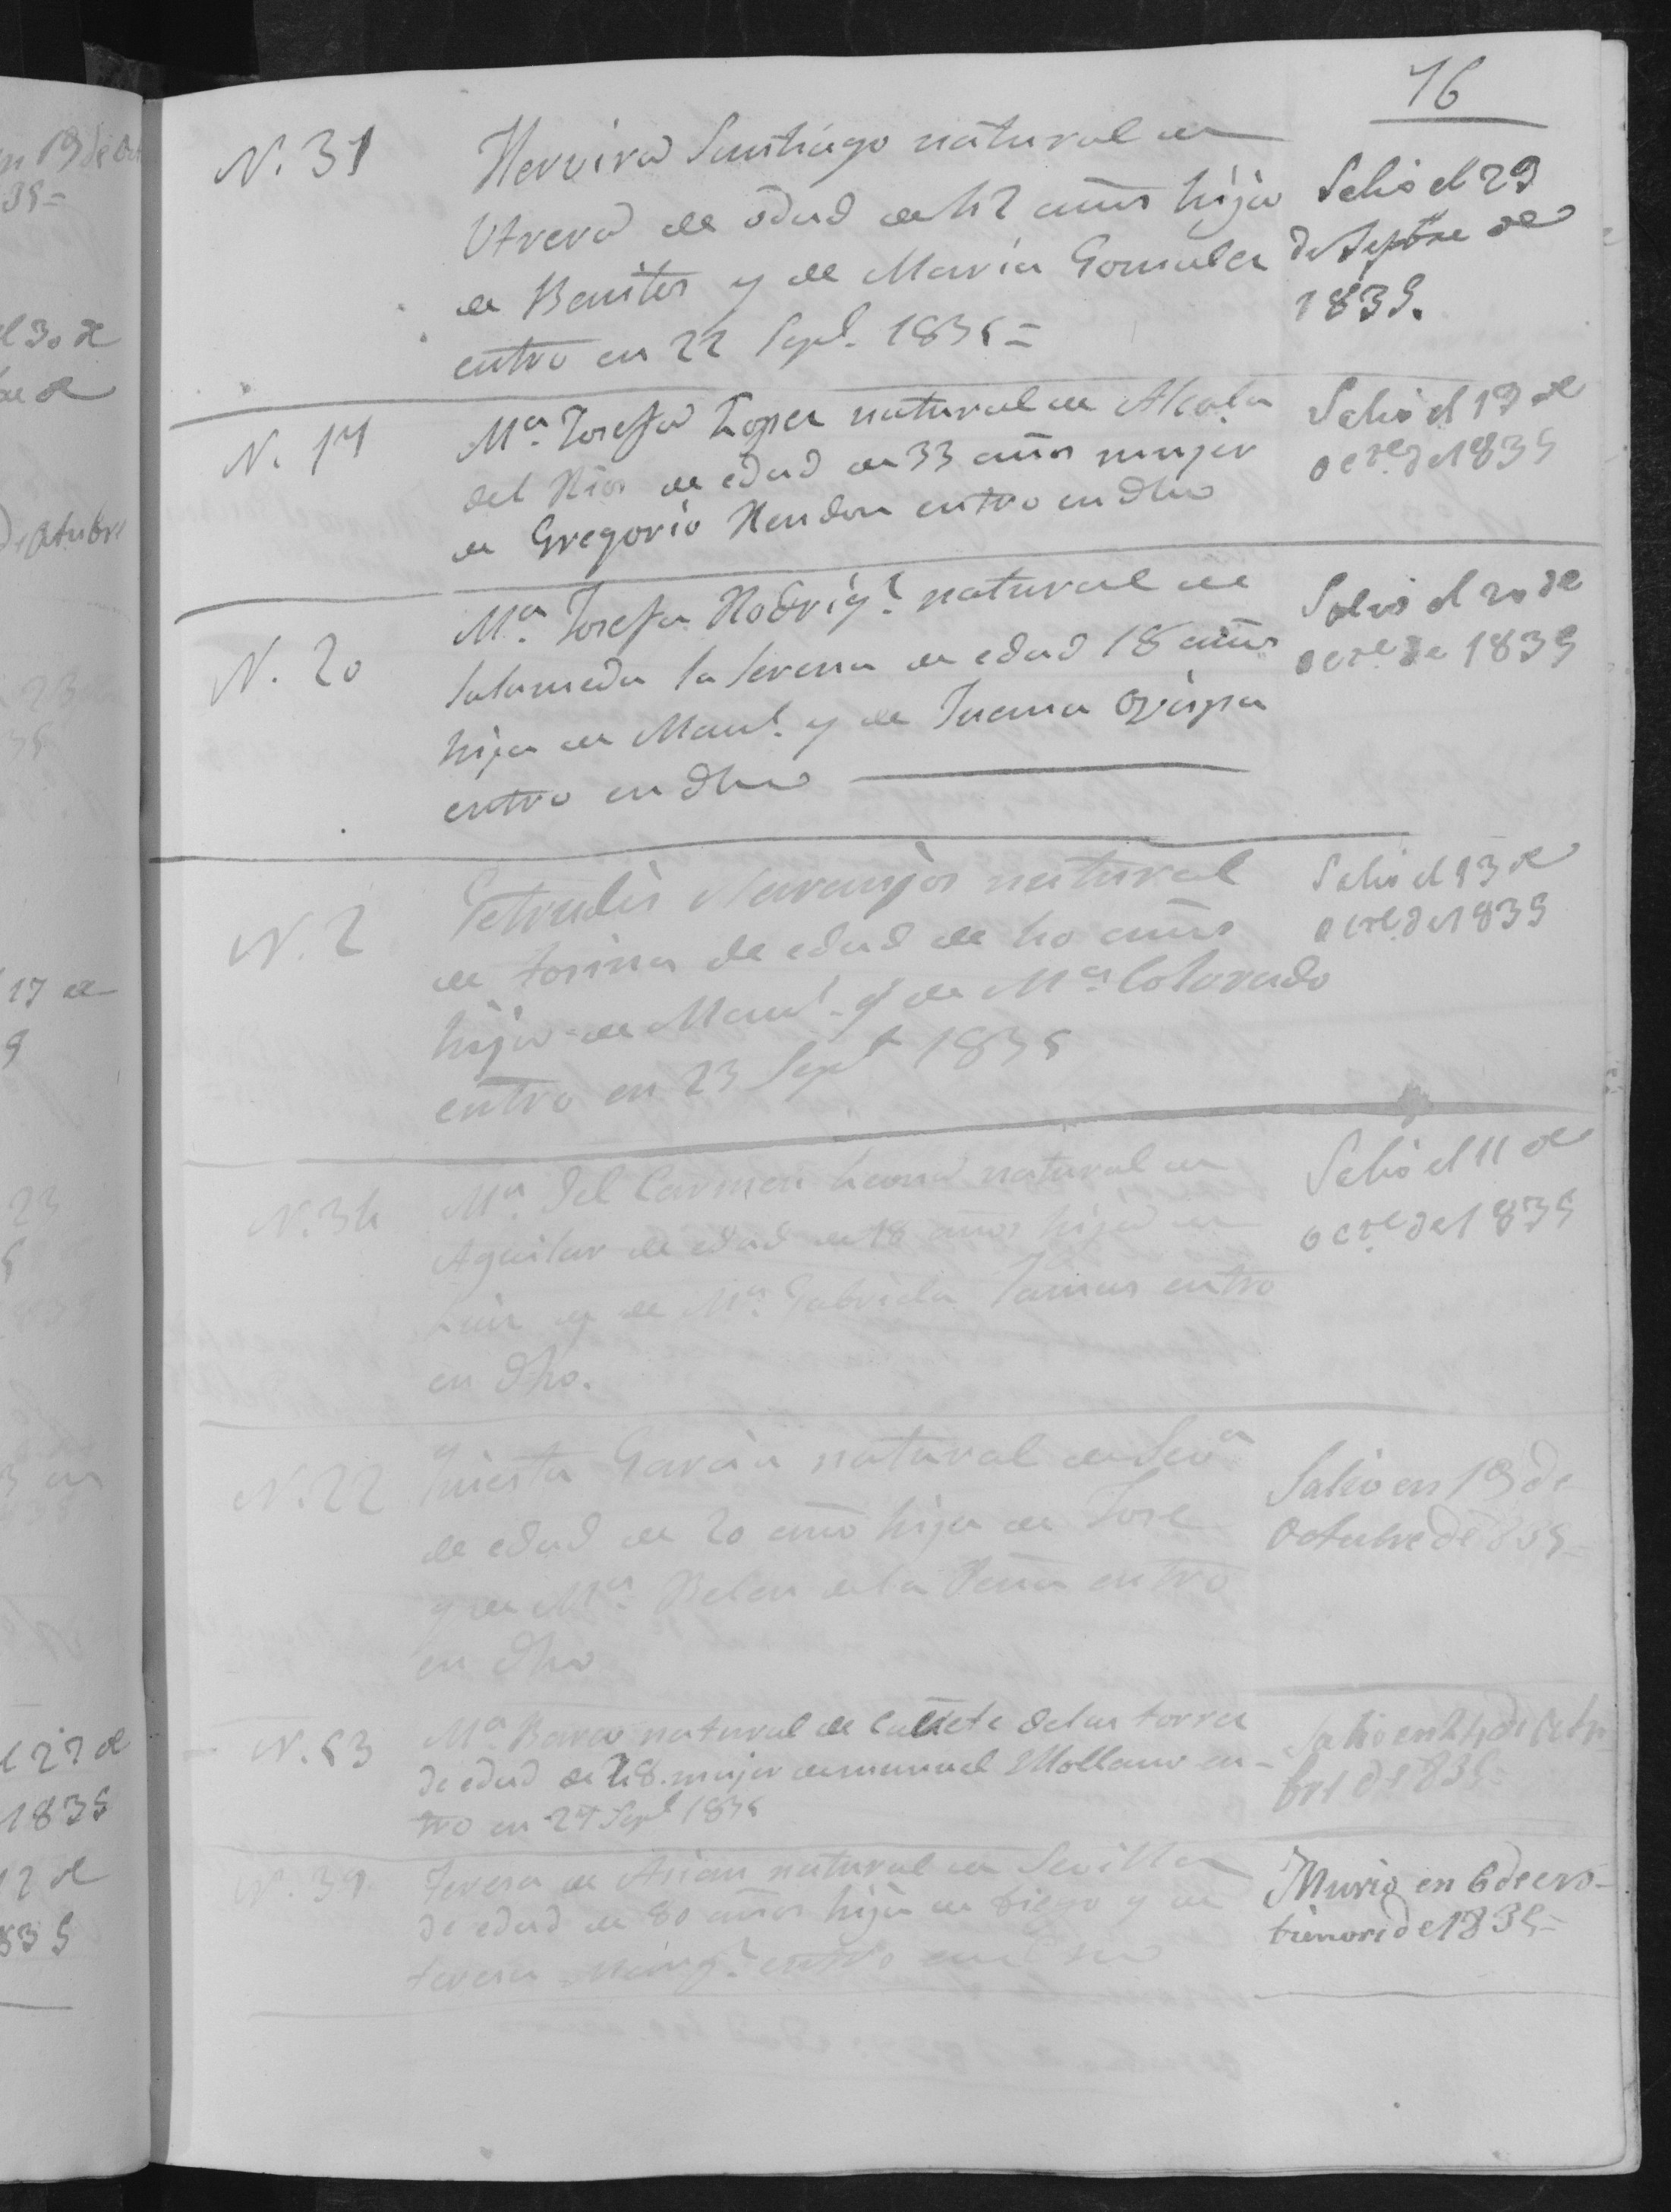 76
N. 31
Herrira Santiago natural de
Utrera de edad de 42 años hija
de Benito y de Maria Gonzalez
entro en 22 Sepe. 1835=
Salio el 29
de Sepbre de
1835.
N. 17
Ma. Josefa Lopez natural de Alcala
del Rios de edad de 33 años mujer
de Gregorio Rendon entro en dho
Salio el 19 de
octe. de 1835
N. 20
Ma. Josefa Rodrigz. natural de
Salameda la Serena de edad 18 años
hija de Manl. y de Juana
entro en dho
Salio el 20 de
octe. de 1835
N. 2
Getrudis Naranjos natural
de tosina de edad de 40 años
hija de Manl. y de Ma. Colorado
entro en 23 Sepe 1835
Salio el 13 de
octe. de 1835
N. 34
Ma. del Carmen natural de
Aguilar de edad de 18 años hija de
Luis y de Ma. Gabriela entro
en dho.
Salio el 11 de
octe. de 1835
N. 22
Justa Garcia natural de Seva
de edad de 20 año hija de Jose
y de Ma. Belen de la Peña entro
en dho
Salio en 19 de
Octubre de 1835=
N. 53
Ma. natural de Cañete de las torres
de edad de 48. mujer de manuel en-
tro en 27 Sepe 1835
Salio en 24 de Octu-
bre de 1835=
N. 39.
Teresa de natural de Sevilla
de edad de 80 años hija de Diego y de
teresa entro en dho
Murio en 6 de
de 1835=